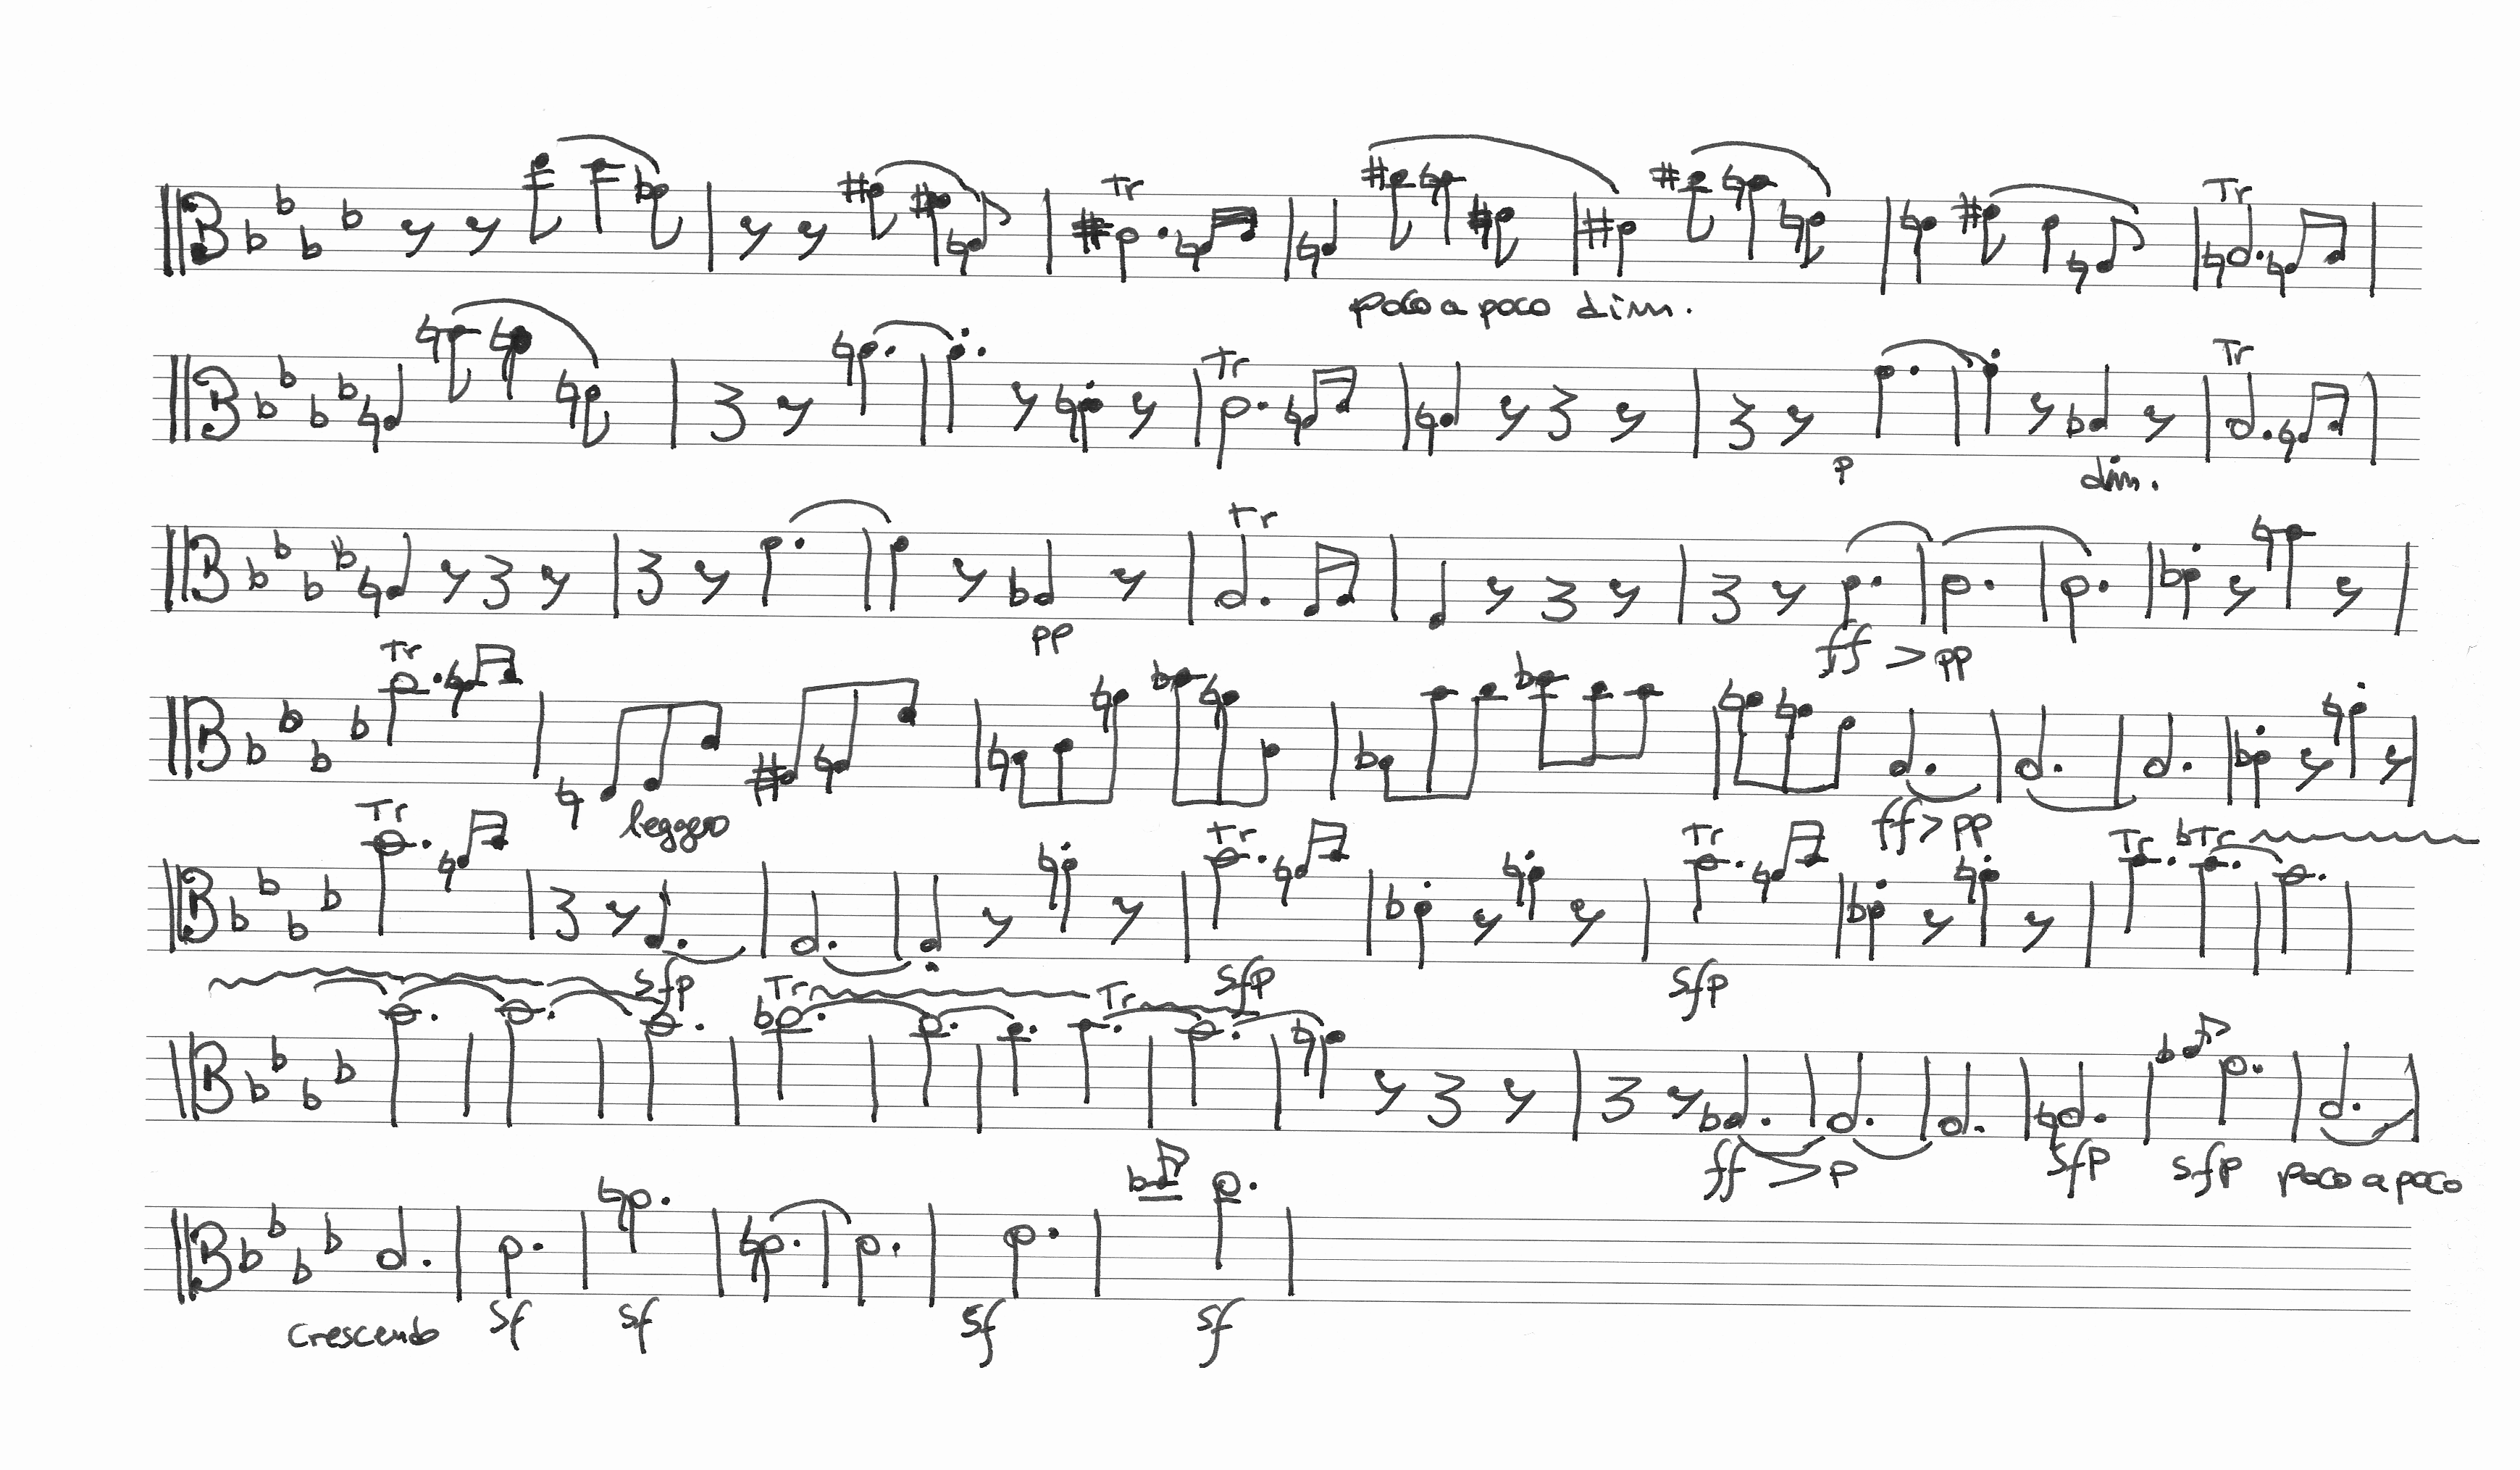 Tr Tr
poco a poco dim.
Tr Tr
p dim.
Tr
pp ff > pp
Tr
leggero ff > pp
Tr Tr Tr Tr Tr
sfp sfp sfp
Tr Tr
ff > p sfp sfp poco a poco
crescendo sf sf sf sf